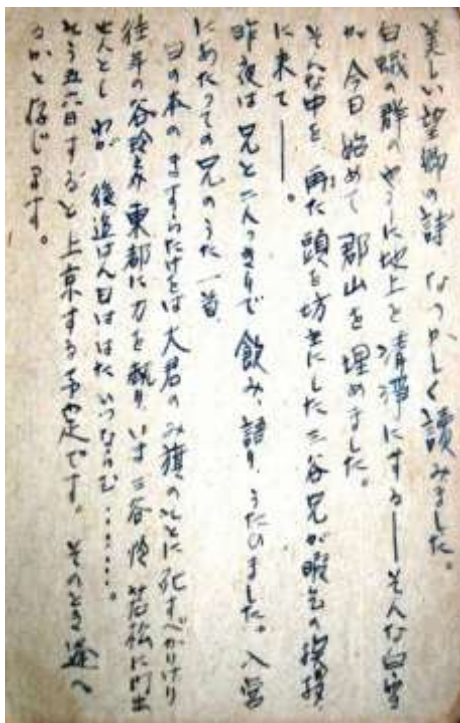 美しい望郷の詩、なつかしく讀みました。
白蛾の群のやうに地上を清浄にする——そんな白雪
が 今日 始めて 郡山を埋めました。
そんな中を、再た 頭を坊主にした三谷兄が暇乞の挨拶
に来て——。
昨夜は 兄と二人つきりで 飲み、語り、うたひました。入営
にあたつての兄のうた一首、
日の本のますらたけをは大君のみ旗のもとに死すべかりけり
往年の谷玲 東都に力を り、いま三谷 若松に
せんとし わが 後追はんも はた いつならむ……。
もう五六日すると上京する予定です。そのとき逢へ
るかと存じます。